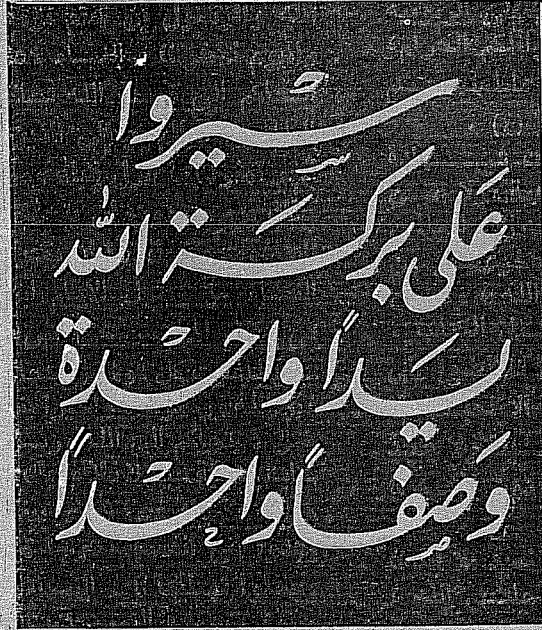 سيروا
على بركة الله
يداً واحدة
وصفاً واحداً